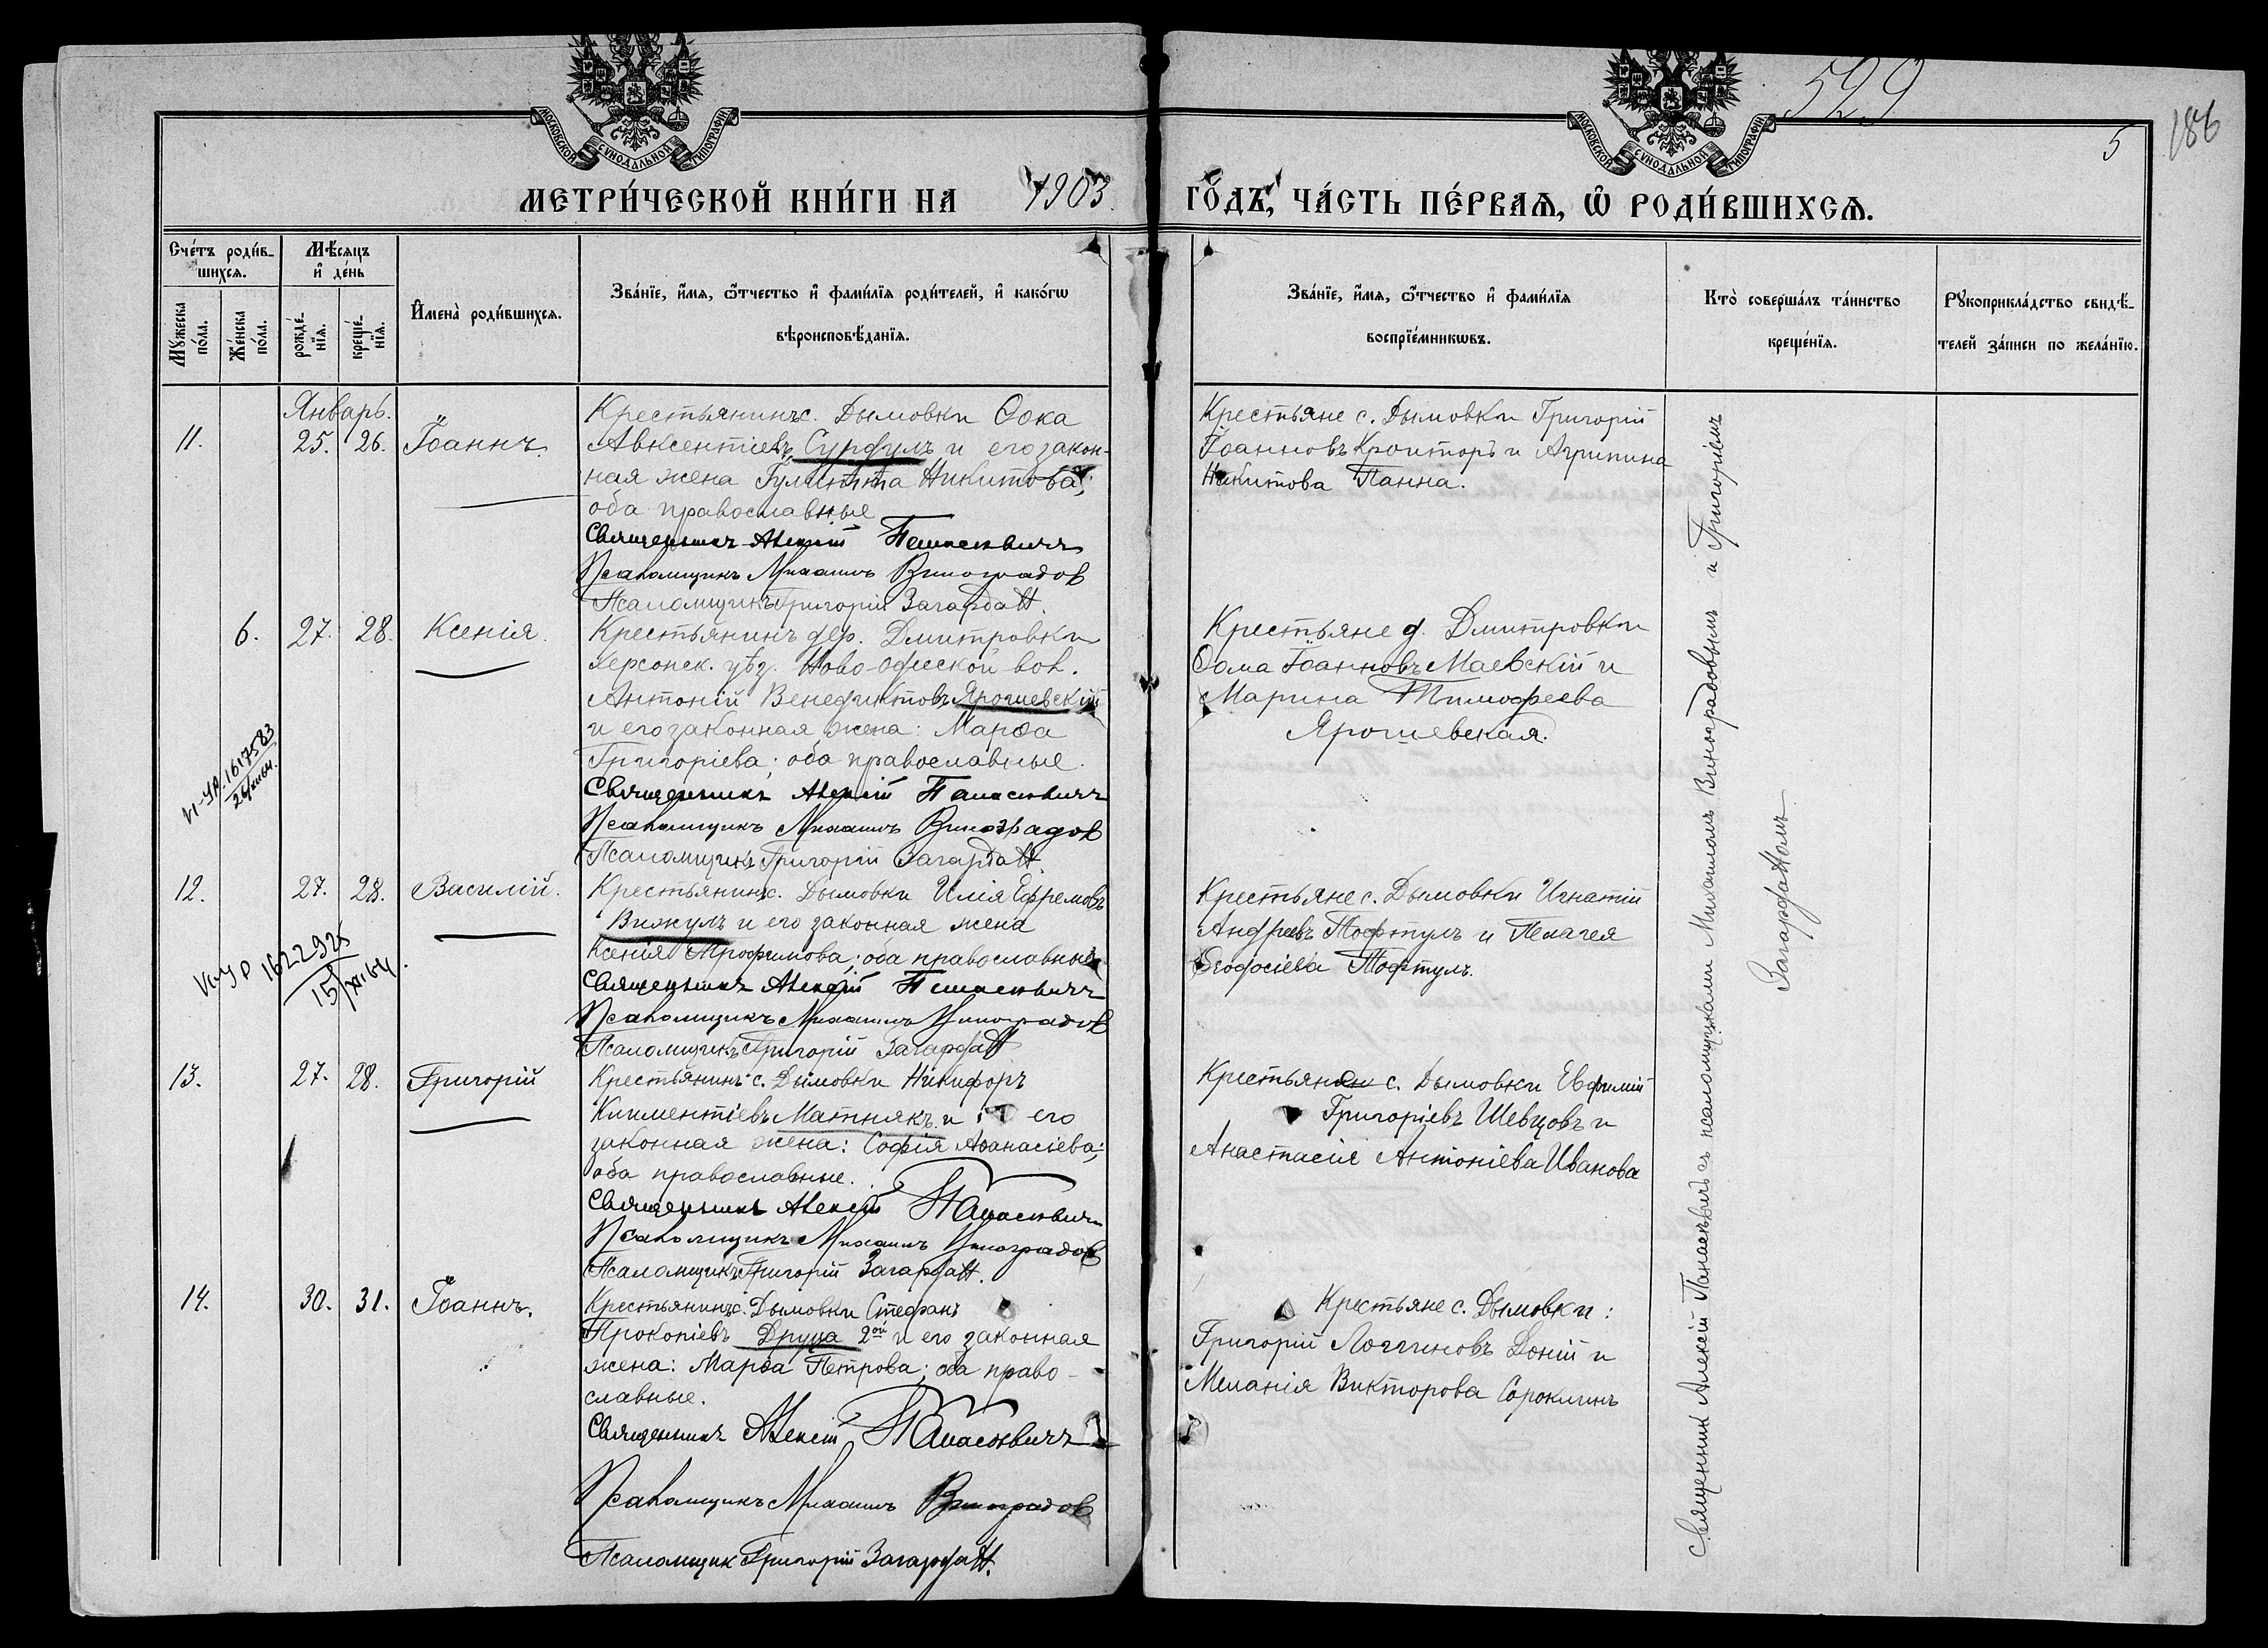 529
186
5
МОСКОВСКОЙ СѴНОДАЛЬНОЙ ТИПОГРАФІИ
МОСКОВСКОЙ СѴНОДАЛЬНОЙ ТИПОГРАФІИ
МЕТРИ́ЧЕСКОЙ КНИ́ГИ НА 1903 ГО́ДЪ, ЧА́СТЬ ПЕ́РВАѦ, Ѡ҆ РОДИ́ВШИХСѦ.
Сче́тъ роди́в-
шихсѧ.
Мѣ́сѧцъ
и҆ де́нь
Мꙋ́жеска по́ла.
Же́нска по́ла.
рожде́-
нїѧ.
креще́-
нїѧ.
И҆мена̀ роди́вшихсѧ.
Зва́нїе, и҆́мѧ, ѻ҆́тчество и҆ фами́лїѧ роди́телей, и҆ како́гѡ
вѣроисповѣ́данїѧ.
Зва́нїе, и҆́мѧ, ѻ҆́тчество и҆ фами́лїѧ
воспрїе́мникѡвъ.
Кто̀ соверша́лъ та́инство
креще́нїѧ.
Рꙋкоприкла́дство свидѣ́-
телей за́писи по жела́нїю.
Январь.
11. 25. 26. Іоаннъ.
Крестьянинъ с. Дымовки Ѳока
Авксентіевъ Сурдулъ и его закон-
ная жена Никитова;
оба православные
Священникъ Алексій Панасевичъ
Псаломщикъ Михаилъ Виноградов
Псаломщикъ Григорій
Крестьяне с. Дымовки Григорій
Іоанновъ Кроиторъ и Агрипина
Никитова Панна.
6. 27. 28. Ксенія.
Крестьянинъ дер. Дмитровки
Херсонск. уѣз. Ново-Одесской вол.
Антоній Венедиктовъ Ярошевскій
и его законная жена: Марѳа
Григоріева; оба православные.
Священникъ Алексій Панасевичъ
Псаломщикъ Михаилъ Виноградов
Псаломщикъ Григорій
Крестьяне д. Дмитровки
Ѳома Іоанновъ Маевскій и
Марина Тимофеева
Ярошевская.
VI-УР. 1617583
26/XII 64.
12. 27. 28. Василій.
Крестьянинъ с. Дымовки Илія Ефремовъ
Вижулъ и его законная жена
Ксенія Трофимова; оба православные
Священникъ Алексій Панасевичъ
Псаломщикъ Михаилъ Виноградов
Псаломщикъ Григорій
Крестьяне с. Дымовки Игнатій
Андреевъ Тофтулъ и Пелагея
Ѳеодосіева Тофтулъ.
VI-УР 1622925
15/XI 64.
13. 27. 28. Григорій
Крестьянинъ с. Дымовки Никифоръ
Климентіевъ Матнякъ и его
законная жена: Софія Аѳанасіева;
оба православные.
Священникъ Алексій Панасевичъ
Псаломщикъ Михаилъ Виноградов
Псаломщикъ Григорій
Крестьяне с. Дымовки Евфимій
Григоріевъ Шевцовъ и
Анастасія Антоніева Иванова
14. 30. 31. Іоаннъ.
Крестьянинъ с. Дымовки Стефанъ
Прокопіевъ Друца 2ой и его законная
жена: Марѳа Петрова; оба право-
славные.
Священникъ Алексій Панасевичъ
Псаломщикъ Михаилъ Виноградов
Псаломщик Григорій
Крестьяне с. Дымовки:
Григорій Логгиновъ Доній и
Меланія Викторова
Священникъ Алексій Панасевичъ съ псаломщиками Михаиломъ Виноградовымъ и Григоріемъ